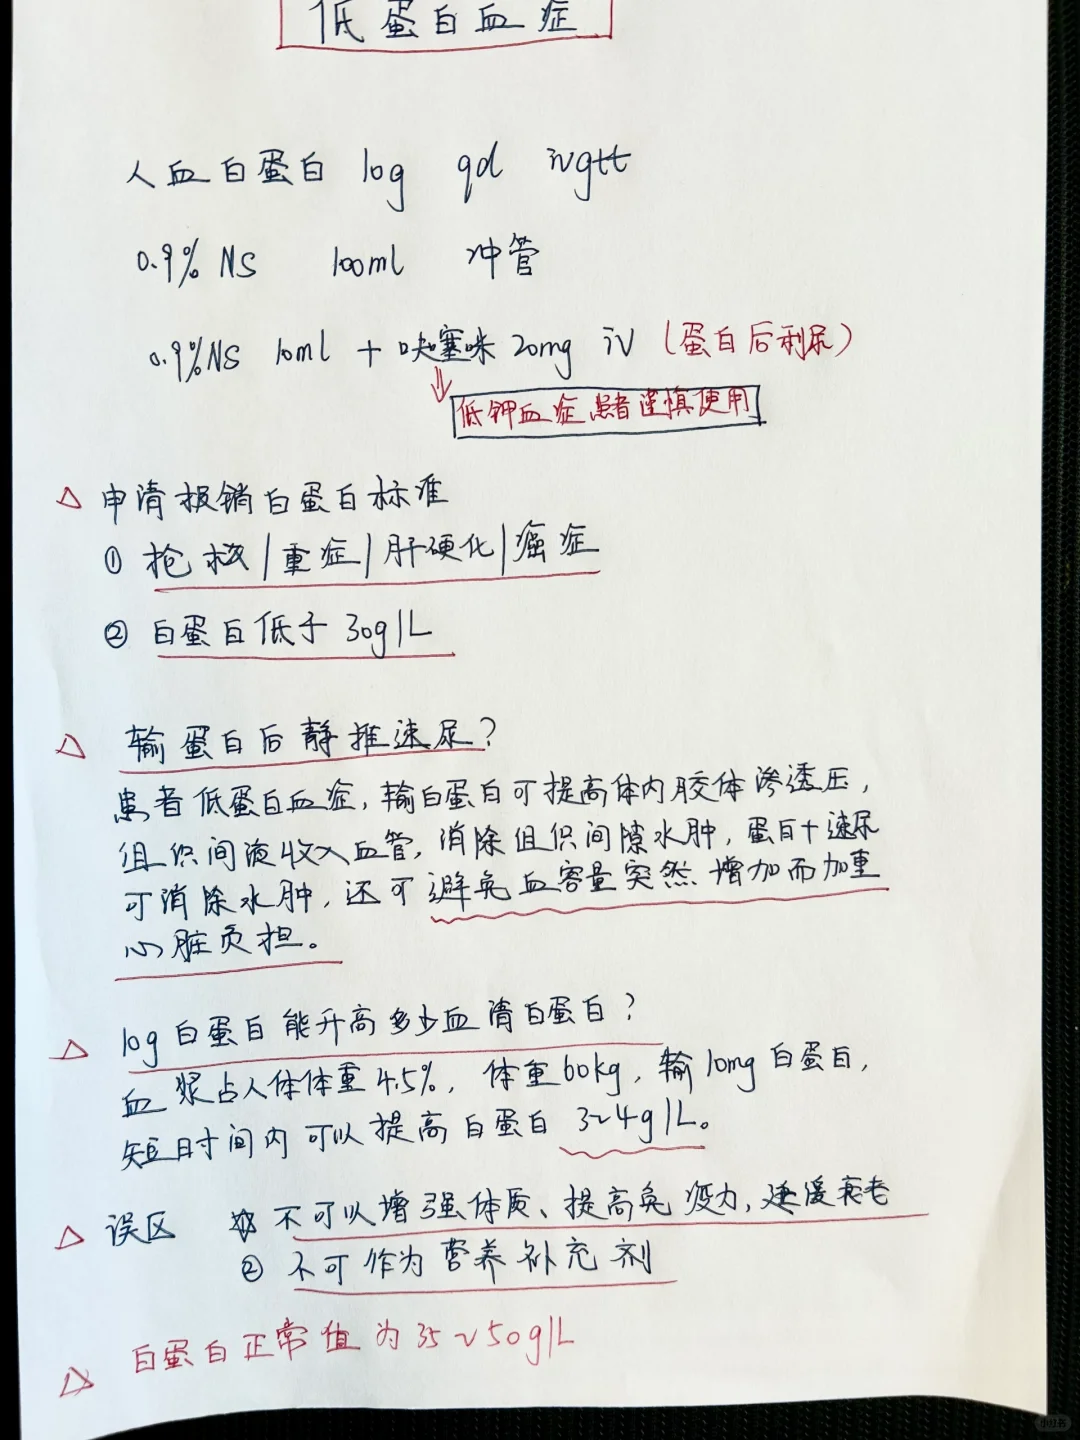 低蛋白血症
人血白蛋白 10g qd ivgtt
0.9% NS 100ml 冲管
0.9%NS 10ml + 呋塞咪 20mg iv (蛋白后利尿)
低钾血症患者谨慎使用
△ 申请报销白蛋白标准
① 抢救/重症/肝硬化/癌症
② 白蛋白低于 30g/L
△ 输蛋白后静推速尿?
患者低蛋白血症,输白蛋白可提高体内胶体渗透压,
组织间液收入血管,消除组织间隙水肿,蛋白+速尿
可消除水肿,还可避免血容量突然增加而加重
心脏负担。
△ 10g白蛋白能升高多少血清白蛋白?
血浆占人体体重4.5%,体重60kg,输10mg白蛋白,
短时间内可以提高白蛋白 3~4g/L。
△ 误区 不可以增强体质、提高免疫力,延缓衰老
② 不可作为营养补充剂
△ 白蛋白正常值为35~50g/L
小红书